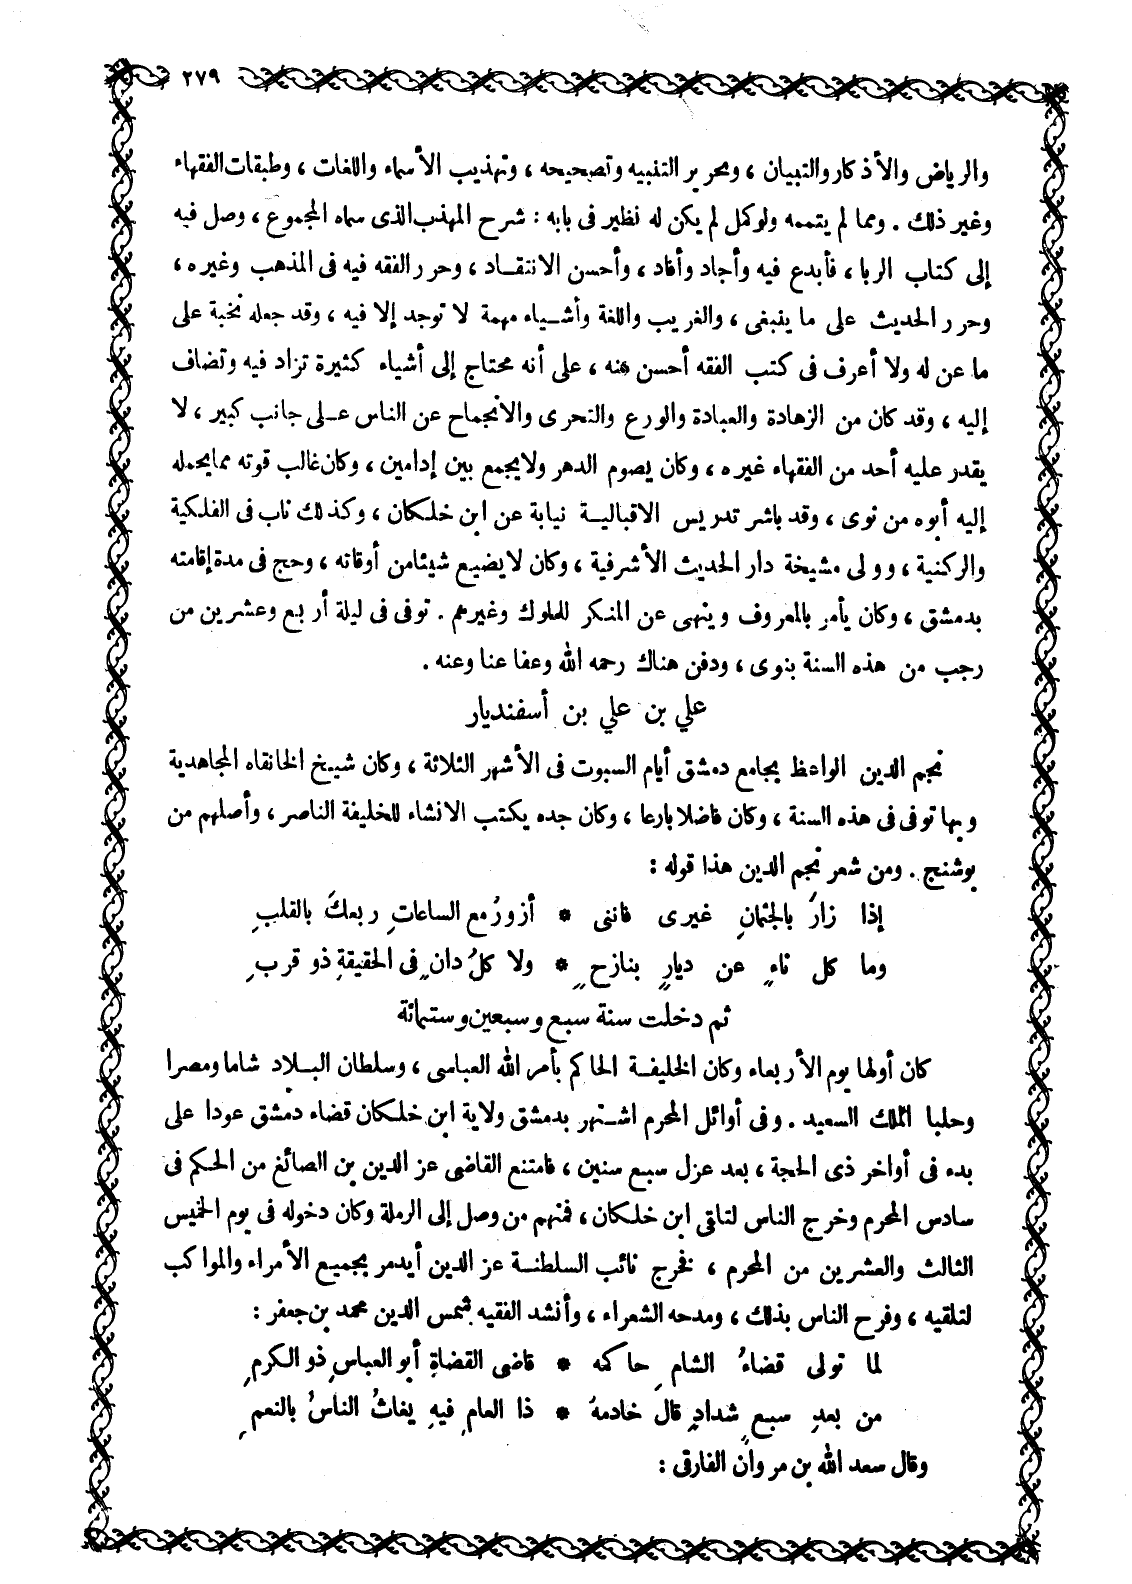 ٢٧٩
والرياض والأذكار والتبيان ، وتحرير التنبيه وتصحيحه ، وتهذيب الأسماء واللغات ، وطبقات الفقهاء
وغير ذلك . ومما لم يتممه ولو كمل لم يكن له نظير فى بابه : شرح المهذب الذى سماه المجموع ، وصل فيه
إلى كتاب الربا ، فأبدع فيه وأجاد وأفاد ، وأحسن الانتقاد ، وحرر الفقه فيه فى المذهب وغيره ،
وحرر الحديث على ما ينبغى ، والغريب واللغة وأشياء مهمة لا توجد إلا فيه ، وقد جعله نخبة على
ما عن له ولا أعرف فى كتب الفقه أحسن منه ، على أنه محتاج إلى أشياء كثيرة تزاد فيه وتضاف
إليه ، وقد كان من الزهادة والعبادة والورع والتحرى والانجماح عن الناس على جانب كبير ، لا
يقدر عليه أحد من الفقهاء غيره ، وكان يصوم الدهر ولا يجمع بين إدامين ، وكان غالب قوته مما يحمله
إليه أبوه من نوى ، وقد باشر تدريس الاقبالية نيابة عن ابن خلكان ، وكذلك ناب فى الفلكية
والركنية ، وولى مشيخة دار الحديث الأشرفية ، وكان لا يضيع شيئا من أوقاته ، وحج فى مدة إقامته
بدمشق ، وكان يأمر بالمعروف وينهى عن المنكر للملوك وغيرهم . توفى فى ليلة أربع وعشرين من
رجب من هذه السنة بنوى ، ودفن هناك رحمه الله وعفا عنا وعنه .
علي بن علي بن أسفنديار
نجم الدين الواعظ بجامع دمشق أيام السبوت فى الأشهر الثلاثة ، وكان شيخ الخانقاه المجاهدية
وبها توفى فى هذه السنة ، وكان فاضلا بارعا ، وكان جده يكتب الانشاء للخليفة الناصر ، وأصلهم من
بوشنج . ومن شعر نجم الدين هذا قوله :
إذا زارَ بالجثمانِ غيرى فاننى * أزورُ مع الساعاتِ ربعكَ بالقلبِ
وما كل ناءٍ عن ديارٍ بنازحٍ * ولا كلُ دانٍ فى الحقيقةِ ذو قربِ
ثم دخلت سنة سبع وسبعين وستمائة
كان أولها يوم الأربعاء وكان الخليفة الحاكم بأمر الله العباسى ، وسلطان البلاد شاما ومصرا
وحلبا الملك السعيد . وفى أوائل المحرم اشتهر بدمشق ولاية ابن خلكان قضاء دمشق عودا على
بدء فى أواخر ذى الحجة ، بعد عزل سبع سنين ، فامتنع القاضى عز الدين بن الصائغ من الحكم فى
سادس المحرم وخرج الناس لتلقى ابن خلكان ، فمنهم من وصل إلى الرملة وكان دخوله فى يوم الخميس
الثالث والعشرين من المحرم ، فخرج نائب السلطنة عز الدين أيدمر بجميع الأمراء والمواكب
لتلقيه ، وفرح الناس بذلك ، ومدحه الشعراء ، وأنشد الفقيه شمس الدين محمد بن جعفر :
لما تولى قضاءُ الشامِ حاكمه * قاضى القضاةِ أبو العباسِ ذو الكرمِ
من بعدِ سبعٍ شدادٍ قال خادمهُ * ذا العامِ فيهِ يغاثُ الناسُ بالنعمِ
وقال سعد الله بن مروان الفارقى :